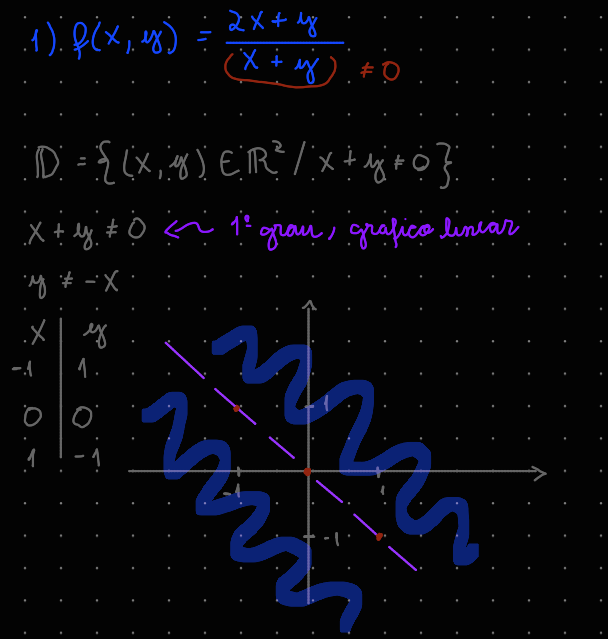 1) f(x, y) = 2x + y / x + y ≠ 0
D = {(x, y) ∈ ℝ² / x + y ≠ 0}
x + y ≠ 0 ← 1º grau, grafico linear
y ≠ -x
x | y
-1 | 1
0 | 0
1 | -1
1
-1
1
-1